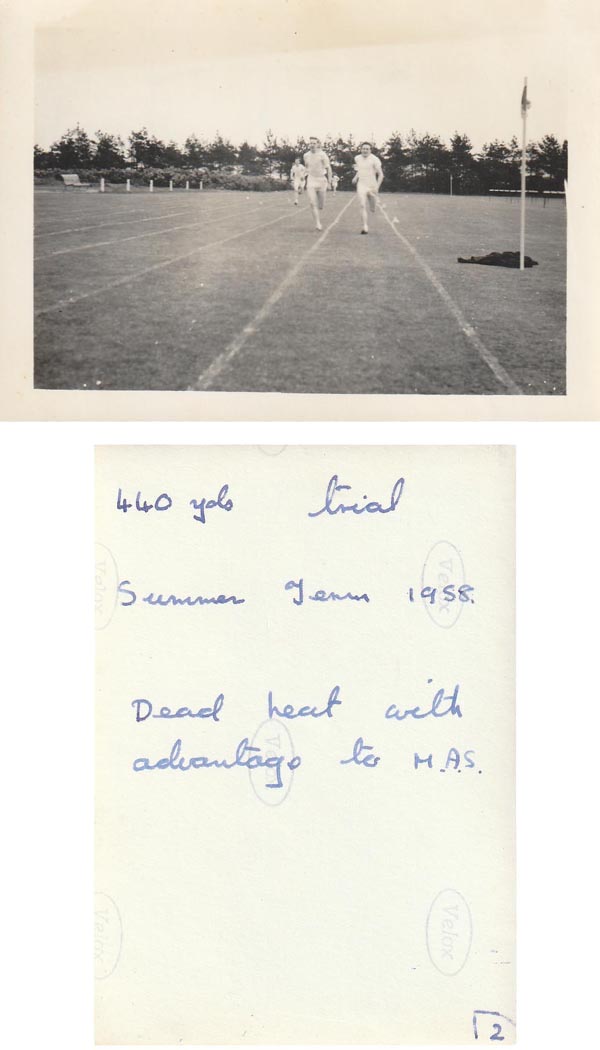 440 yds trial
Summer Term 1958.
Dead heat with
advantage to M.A.S.
Velox
Velox
Velox
Velox
Velox
2